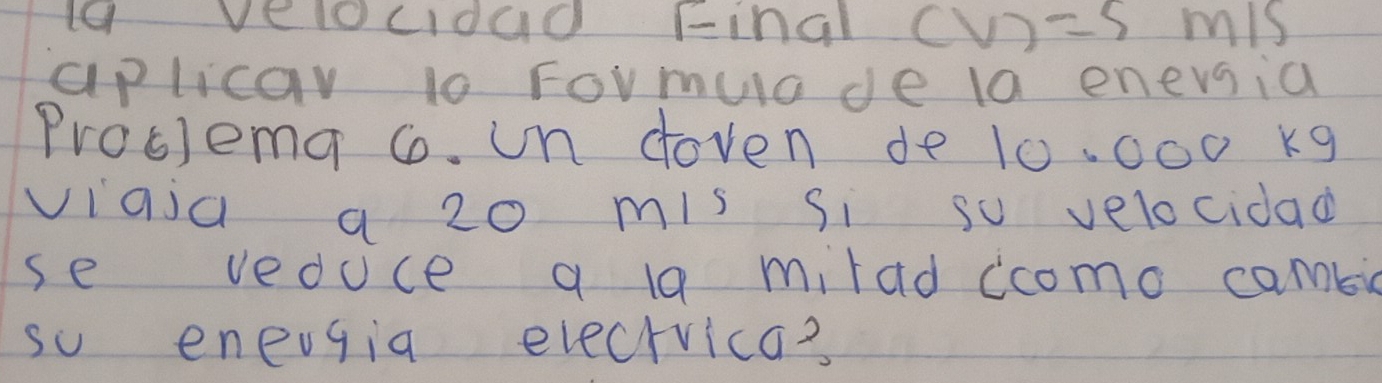 la velocidad Final (V)=5 m/s
aplicar la Formula de la energia
Problema 6. Un doven de 10.000 kg
viaja a 20 m/s si su velocidad
se reduce a la mitad ¿como cambia
su energia electrica?